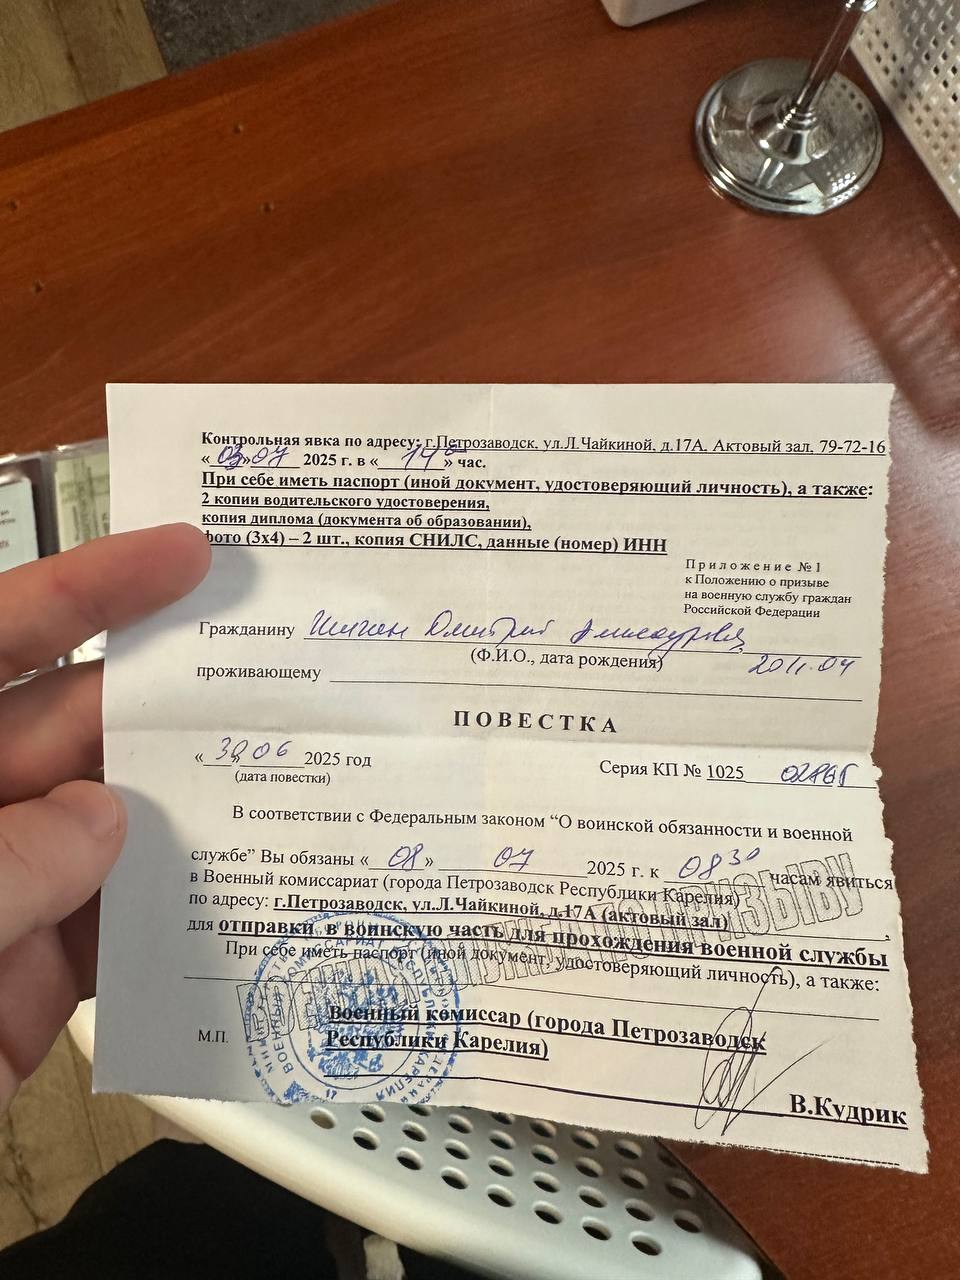 Контрольная явка по адресу: г.Петрозаводск, ул.Л.Чайкиной, д.17А, Актовый зал, 79-72-16
«03» 07 2025 г. в « 14⁰⁰ » час.
При себе иметь паспорт (иной документ, удостоверяющий личность), а также:
2 копии водительского удостоверения,
копия диплома (документа об образовании),
фото (3х4) – 2 шт., копия СНИЛС, данные (номер) ИНН
Приложение № 1
к Положению о призыве
на военную службу граждан
Российской Федерации
Гражданину Дмитрий
(Ф.И.О., дата рождения)
проживающему
ПОВЕСТКА
« 30 » 06 2025 год
(дата повестки)
Серия КП № 1025
В соответствии с Федеральным законом “О воинской обязанности и военной
службе” Вы обязаны « 08 » 07 2025 г. к 08³⁰ часам явиться
в Военный комиссариат (города Петрозаводск Республики Карелия)
по адресу: г.Петрозаводск, ул.Л.Чайкиной, д.17А (актовый зал),
для отправки в воинскую часть для прохождения военной службы
При себе иметь паспорт (иной документ, удостоверяющий личность), а также:
Военный комиссар (города Петрозаводск
Республики Карелия)
М.П.
В.Кудрик
ВОЕННЫЙ КОМИССАРИАТ РЕСПУБЛИКИ КАРЕЛИЯ
ПРИЗЫВУ